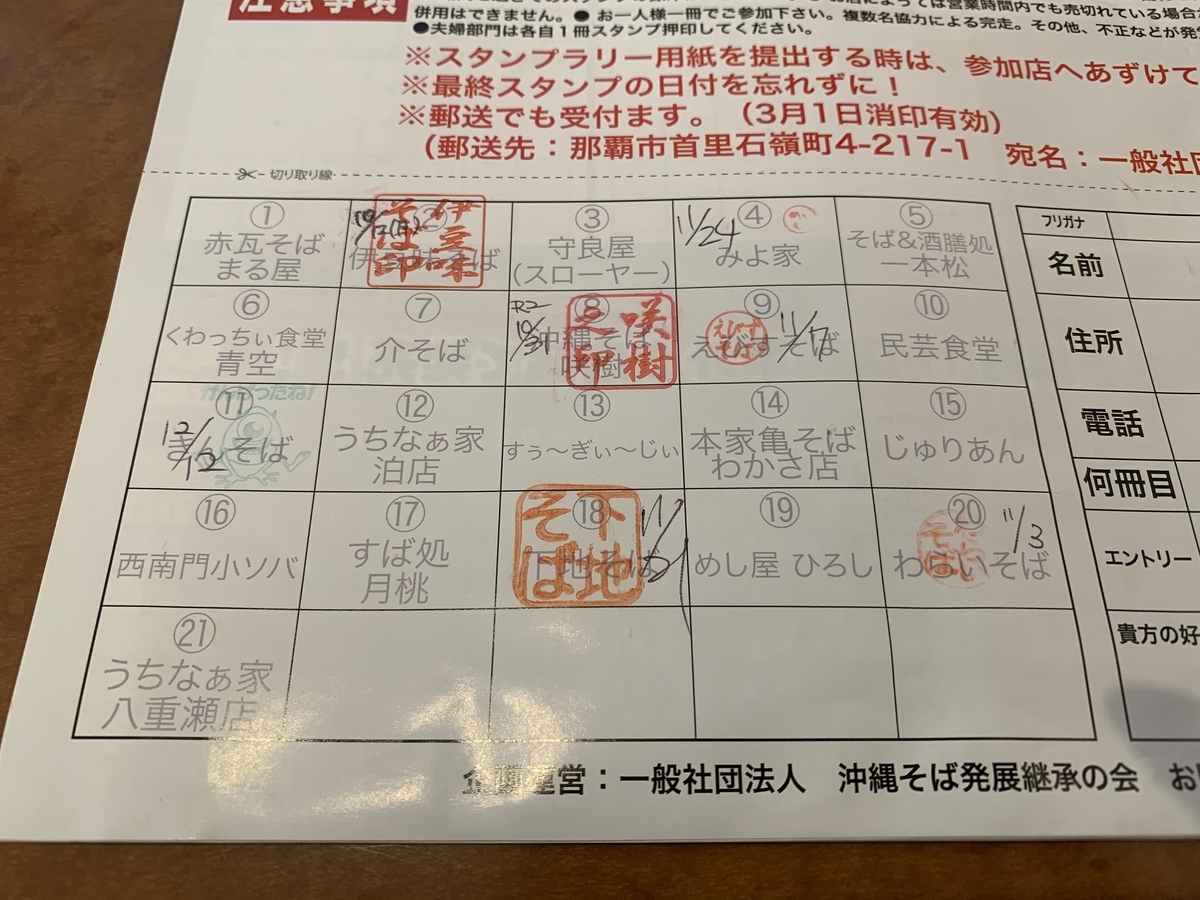 注意事項
併用はできません。●お一人様一冊でご参加下さい。複数名協力による完走。その他、不正などが発
●夫婦部門は各自1冊スタンプ押印してください。
※スタンプラリー用紙を提出する時は、参加店へあずけて
※最終スタンプの日付を忘れずに！
※郵送でも受付ます。（3月1日消印有効）
（郵送先：那覇市首里石嶺町4-217-1 宛名：一般社団
切り取り線
① 赤瓦そば
まる屋
②
伊豆味
そば印
③ 守良屋
（スローヤー）
11/24
④ みよ家
⑤ そば＆酒膳処
一本松
⑥ くわっちぃ食堂
青空
⑦ 介そば
R2
10/31
⑧ 沖縄そば
咲樹
咲樹
之印
⑨ えびすそば
えびす
そば
11/17
⑩ 民芸食堂
がんばったね!
⑪
そば
12/12
⑫ うちなぁ家
泊店
⑬ すぅ～ぎぃ～じぃ
⑭ 本家亀そば
わかさ店
⑮ じゅりあん
⑯ 西南門小ソバ
⑰ すば処
月桃
⑱ 下地そば
下地
そば
⑲ めし屋 ひろし
⑳ わらいそば
11/3
㉑ うちなぁ家
八重瀬店
フリガナ
名前
住所
電話
何冊目
エントリー
貴方の好
企画運営：一般社団法人 沖縄そば発展継承の会 お